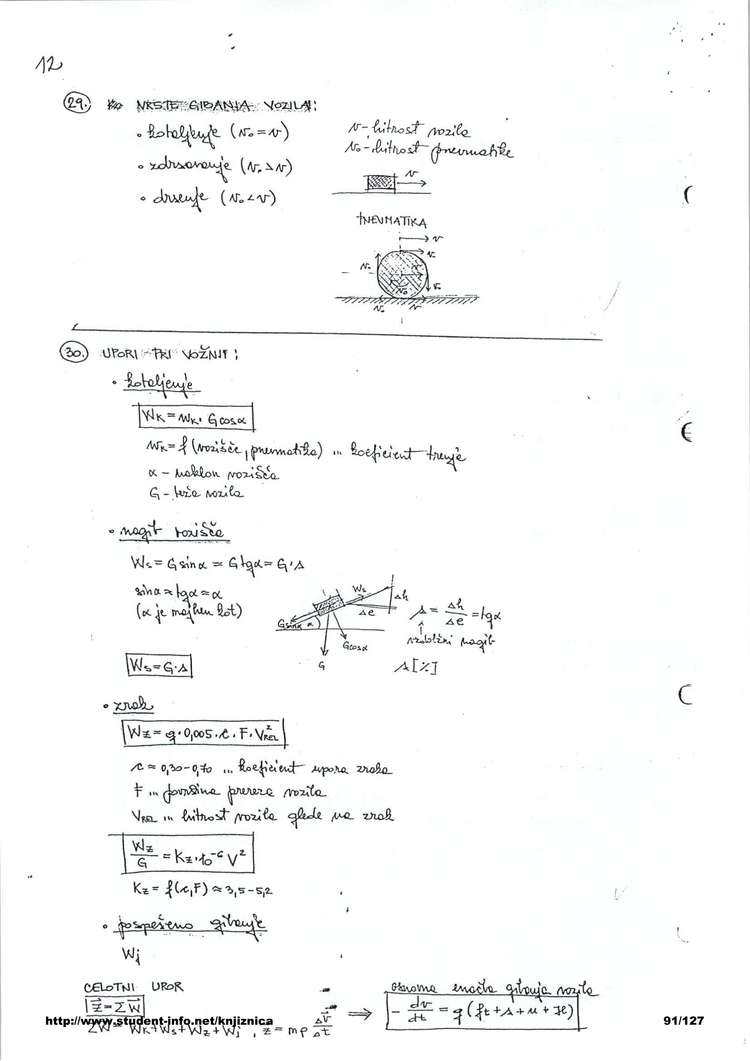 12
29. VRSTE GIBANJA VOZILA:
• kotaljenje (v₀ = v)
• zdrsavanje (v₀ > v)
• drsenje (v₀ < v)
v - hitrost vozila
v₀ - hitrost pnevmatike
v
PNEVMATIKA
v
v₀
v₀
v
v₀
v₀
v₀
v
30. UPORI PRI VOŽNJI:
• kotaljenje
W_K = w_K · G cosα
w_K = f (vozišče, pnevmatika) ... koeficient trenja
α - naklon vozišča
G - teža vozila
• nagib vozišča
W_s = G sinα = G tgα = G · s
sinα ≈ tgα ≈ α
(α je majhen kot)
W_s
Δh
Δe
G sinα
α
G cosα
G
s = Δh/Δe = tgα
vzdolžni nagib
s [%]
W_s = G · s
• zrak
W_Z = g · 0,005 · c · F · V²_REL
c = 0,30 - 0,70 ... koeficient upora zraka
F ... površina prereza vozila
V_REL ... hitrost vozila glede na zrak
W_Z/G = K_Z · 10⁻⁶ V²
K_Z = f(c, F) ≈ 3,5 - 5,2
• pospešeno gibanje
W_j
CELOTNI UPOR
Z = ΣW
ΣW = W_K + W_s + W_Z + W_j , Z = m ρ Δv/Δt
⇒
osnovna enačba gibanja vozila
- dv/dt = g (f_t + s + u + ℋ)
http://www.student-info.net/knjiznica
91/127